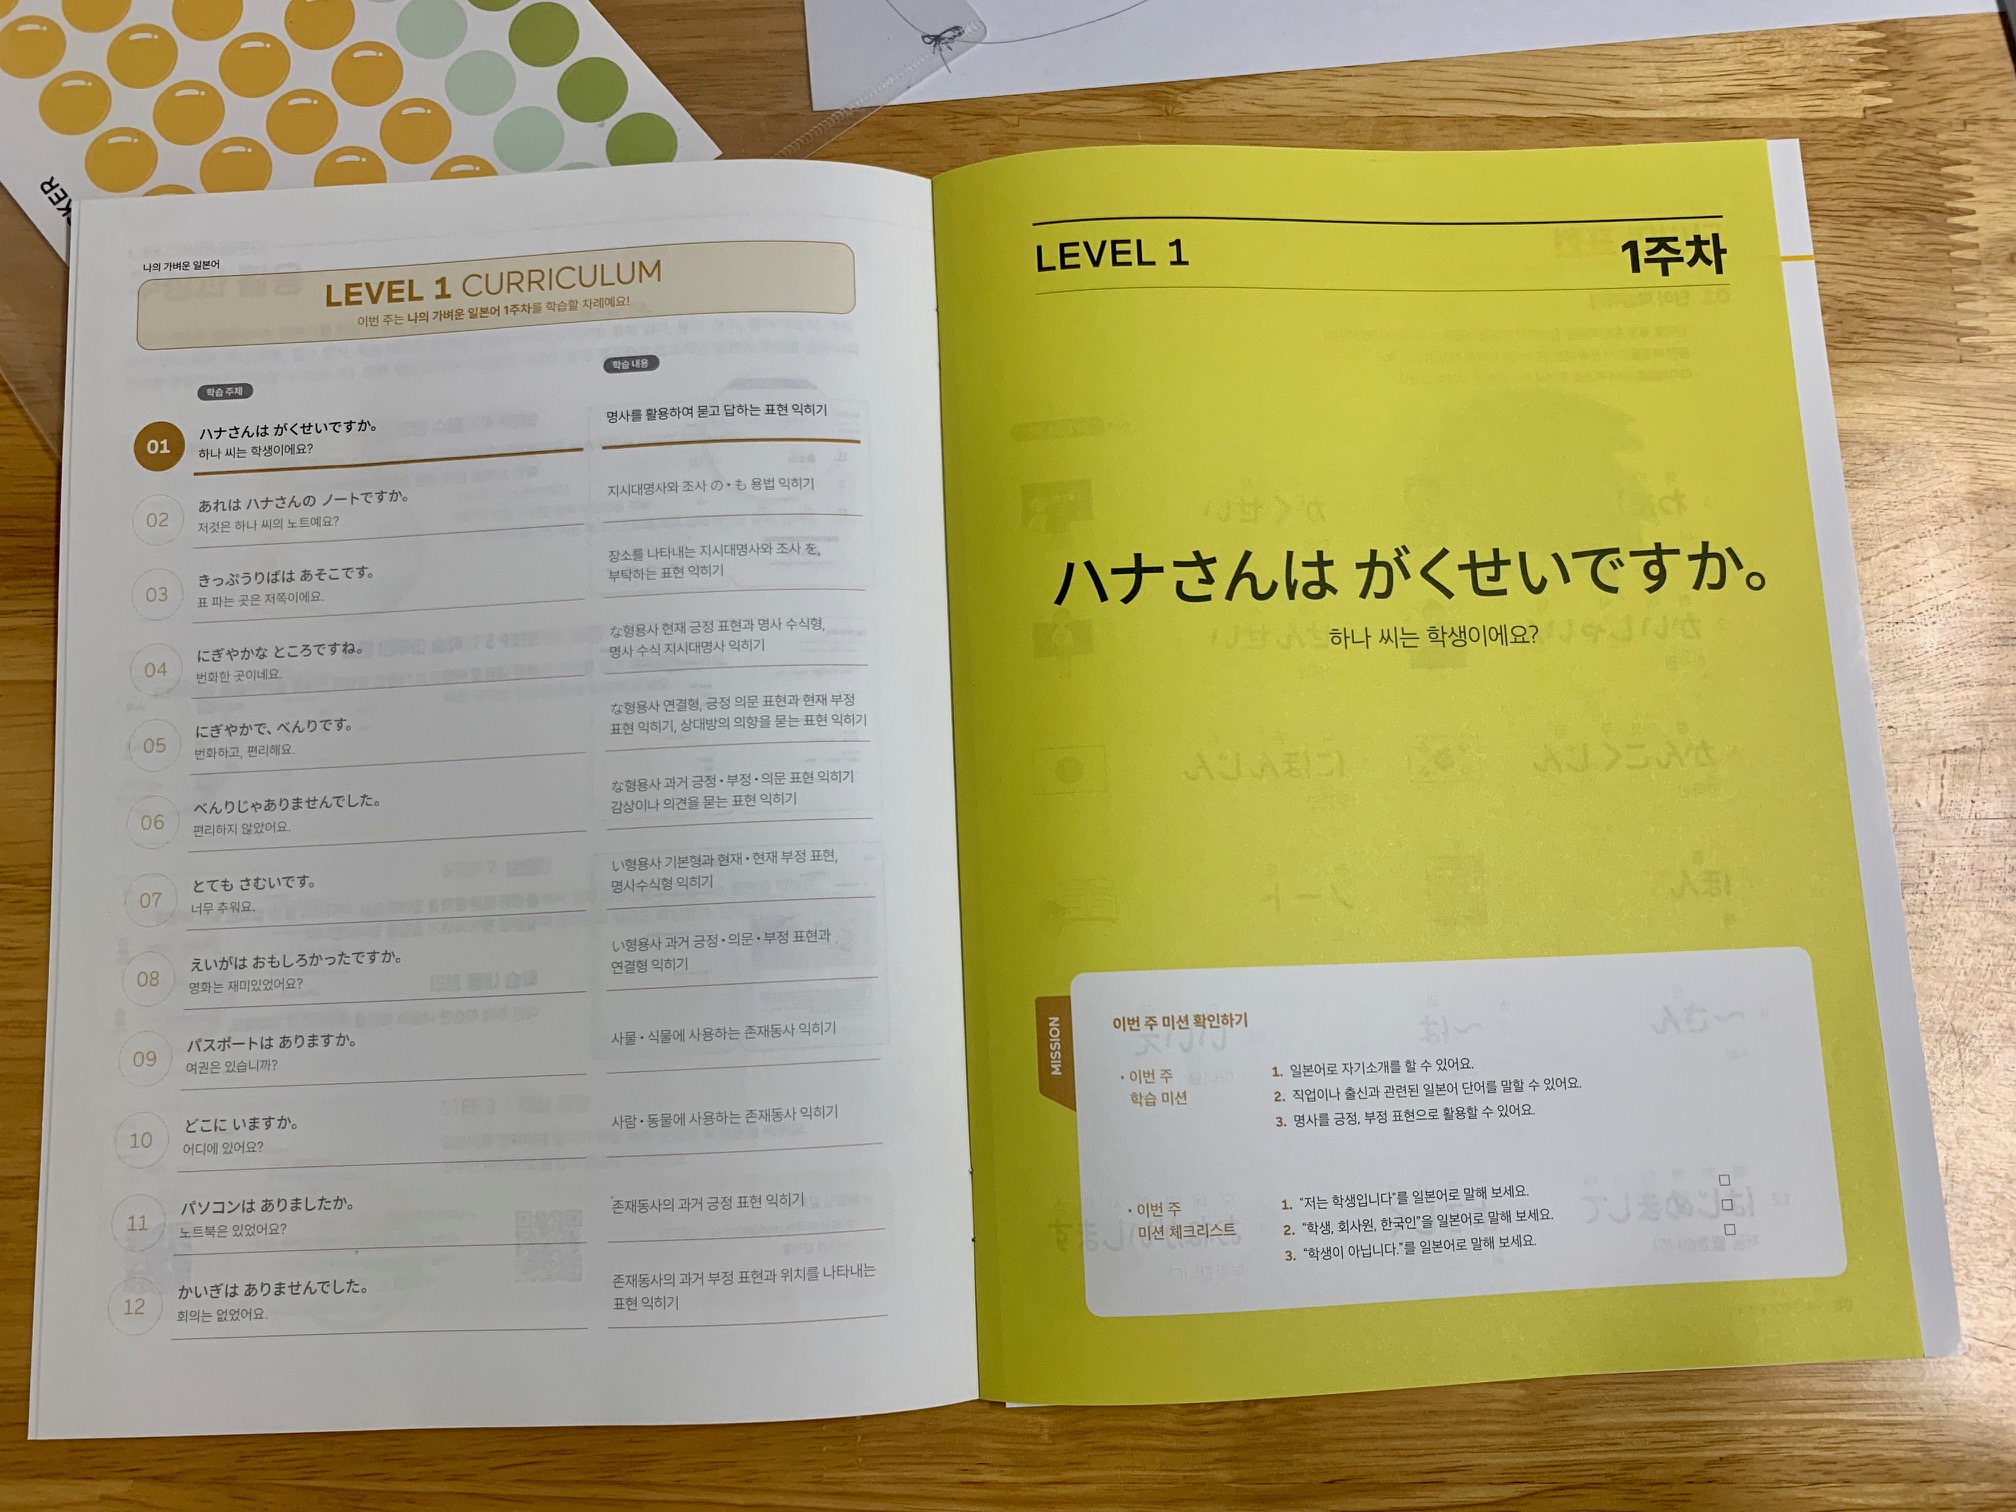 나의 가벼운 일본어
LEVEL 1 CURRICULUM
이번 주는 나의 가벼운 일본어 1주차를 학습할 차례예요!
학습 주제
학습 내용
01
ハナさんは がくせいですか。
하나 씨는 학생이에요?
명사를 활용하여 묻고 답하는 표현 익히기
02
あれは ハナさんの ノートですか。
저것은 하나 씨의 노트예요?
지시대명사와 조사 の・も 용법 익히기
03
きっぷうりばは あそこです。
표 파는 곳은 저쪽이에요.
장소를 나타내는 지시대명사와 조사 を,
부탁하는 표현 익히기
04
にぎやかな ところですね。
번화한 곳이네요.
な형용사 현재 긍정 표현과 명사 수식형,
명사 수식 지시대명사 익히기
05
にぎやかで、べんりです。
번화하고, 편리해요.
な형용사 연결형, 긍정 의문 표현과 현재 부정
표현 익히기, 상대방의 의향을 묻는 표현 익히기
06
べんりじゃありませんでした。
편리하지 않았어요.
な형용사 과거 긍정・부정・의문 표현 익히기
감상이나 의견을 묻는 표현 익히기
07
とても さむいです。
너무 추워요.
い형용사 기본형과 현재・현재 부정 표현,
명사수식형 익히기
08
えいがは おもしろかったですか。
영화는 재미있었어요?
い형용사 과거 긍정・의문・부정 표현과
연결형 익히기
09
パスポートは ありますか。
여권은 있습니까?
사물・식물에 사용하는 존재동사 익히기
10
どこに いますか。
어디에 있어요?
사람・동물에 사용하는 존재동사 익히기
11
パソコンは ありましたか。
노트북은 있었어요?
존재동사의 과거 긍정 표현 익히기
12
かいぎは ありませんでした。
회의는 없었어요.
존재동사의 과거 부정 표현과 위치를 나타내는
표현 익히기
LEVEL 1
1주차
ハナさんは がくせいですか。
하나 씨는 학생이에요?
MISSION
이번 주 미션 확인하기
・이번 주
학습 미션
1. 일본어로 자기소개를 할 수 있어요.
2. 직업이나 출신과 관련된 일본어 단어를 말할 수 있어요.
3. 명사를 긍정, 부정 표현으로 활용할 수 있어요.
・이번 주
미션 체크리스트
1. “저는 학생입니다”를 일본어로 말해 보세요.
2. “학생, 회사원, 한국인”을 일본어로 말해 보세요.
3. “학생이 아닙니다.”를 일본어로 말해 보세요.